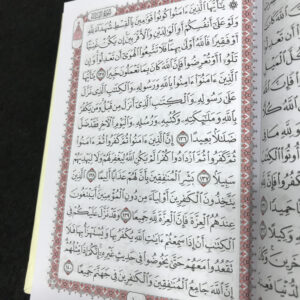 ۞ يَٰٓأَيُّهَا ٱلَّذِينَ ءَامَنُوا۟ كُونُوا۟ قَوَّٰمِينَ بِٱلْقِسْطِ شُهَدَآءَ لِلَّهِ
وَلَوْ عَلَىٰٓ أَنفُسِكُمْ أَوِ ٱلْوَٰلِدَيْنِ وَٱلْأَقْرَبِينَ ۚ إِن يَكُنْ غَنِيًّا
أَوْ فَقِيرًا فَٱللَّهُ أَوْلَىٰ بِهِمَا ۖ فَلَا تَتَّبِعُوا۟ ٱلْهَوَىٰٓ أَن تَعْدِلُوا۟ ۚ
وَإِن تَلْوُۥٓا۟ أَوْ تُعْرِضُوا۟ فَإِنَّ ٱللَّهَ كَانَ بِمَا تَعْمَلُونَ خَبِيرًا ١٣٥
يَٰٓأَيُّهَا ٱلَّذِينَ ءَامَنُوٓا۟ ءَامِنُوا۟ بِٱللَّهِ وَرَسُولِهِۦ وَٱلْكِتَٰبِ ٱلَّذِى نَزَّلَ
عَلَىٰ رَسُولِهِۦ وَٱلْكِتَٰبِ ٱلَّذِىٓ أَنزَلَ مِن قَبْلُ ۚ وَمَن يَكْفُرْ
بِٱللَّهِ وَمَلَٰٓئِكَتِهِۦ وَكُتُبِهِۦ وَرُسُلِهِۦ وَٱلْيَوْمِ ٱلْءَاخِرِ فَقَدْ ضَلَّ
ضَلَٰلًۢا بَعِيدًا ١٣٦ إِنَّ ٱلَّذِينَ ءَامَنُوا۟ ثُمَّ كَفَرُوا۟ ثُمَّ ءَامَنُوا۟
ثُمَّ كَفَرُوا۟ ثُمَّ ٱزْدَادُوا۟ كُفْرًا لَّمْ يَكُنِ ٱللَّهُ لِيَغْفِرَ لَهُمْ وَلَا لِيَهْدِيَهُمْ
سَبِيلًۢا ١٣٧ بَشِّرِ ٱلْمُنَٰفِقِينَ بِأَنَّ لَهُمْ عَذَابًا أَلِيمًا ١٣٨ ٱلَّذِينَ
يَتَّخِذُونَ ٱلْكَٰفِرِينَ أَوْلِيَآءَ مِن دُونِ ٱلْمُؤْمِنِينَ ۚ أَيَبْتَغُونَ
عِندَهُمُ ٱلْعِزَّةَ فَإِنَّ ٱلْعِزَّةَ لِلَّهِ جَمِيعًا ١٣٩ وَقَدْ نَزَّلَ عَلَيْكُمْ فِى
ٱلْكِتَٰبِ أَنْ إِذَا سَمِعْتُمْ ءَايَٰتِ ٱللَّهِ يُكْفَرُ بِهَا وَيُسْتَهْزَأُ بِهَا فَلَا
تَقْعُدُوا۟ مَعَهُمْ حَتَّىٰ يَخُوضُوا۟ فِى حَدِيثٍ غَيْرِهِۦٓ ۚ إِنَّكُمْ إِذًا مِّثْلُهُمْ ۗ
إِنَّ ٱللَّهَ جَامِعُ ٱلْمُنَٰفِقِينَ وَٱلْكَٰفِرِينَ فِى جَهَنَّمَ جَمِيعًا ١٤٠